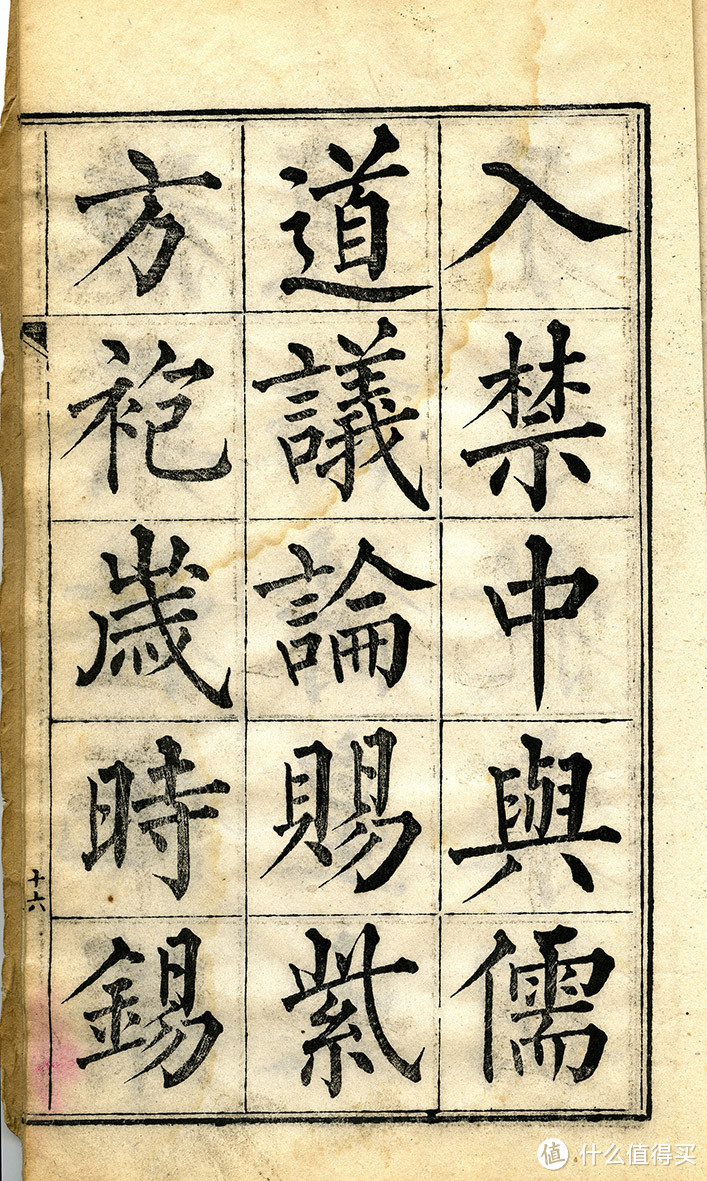 入禁中與儒
道議論賜紫
方袍歲時錫
十六
值 什么值得买